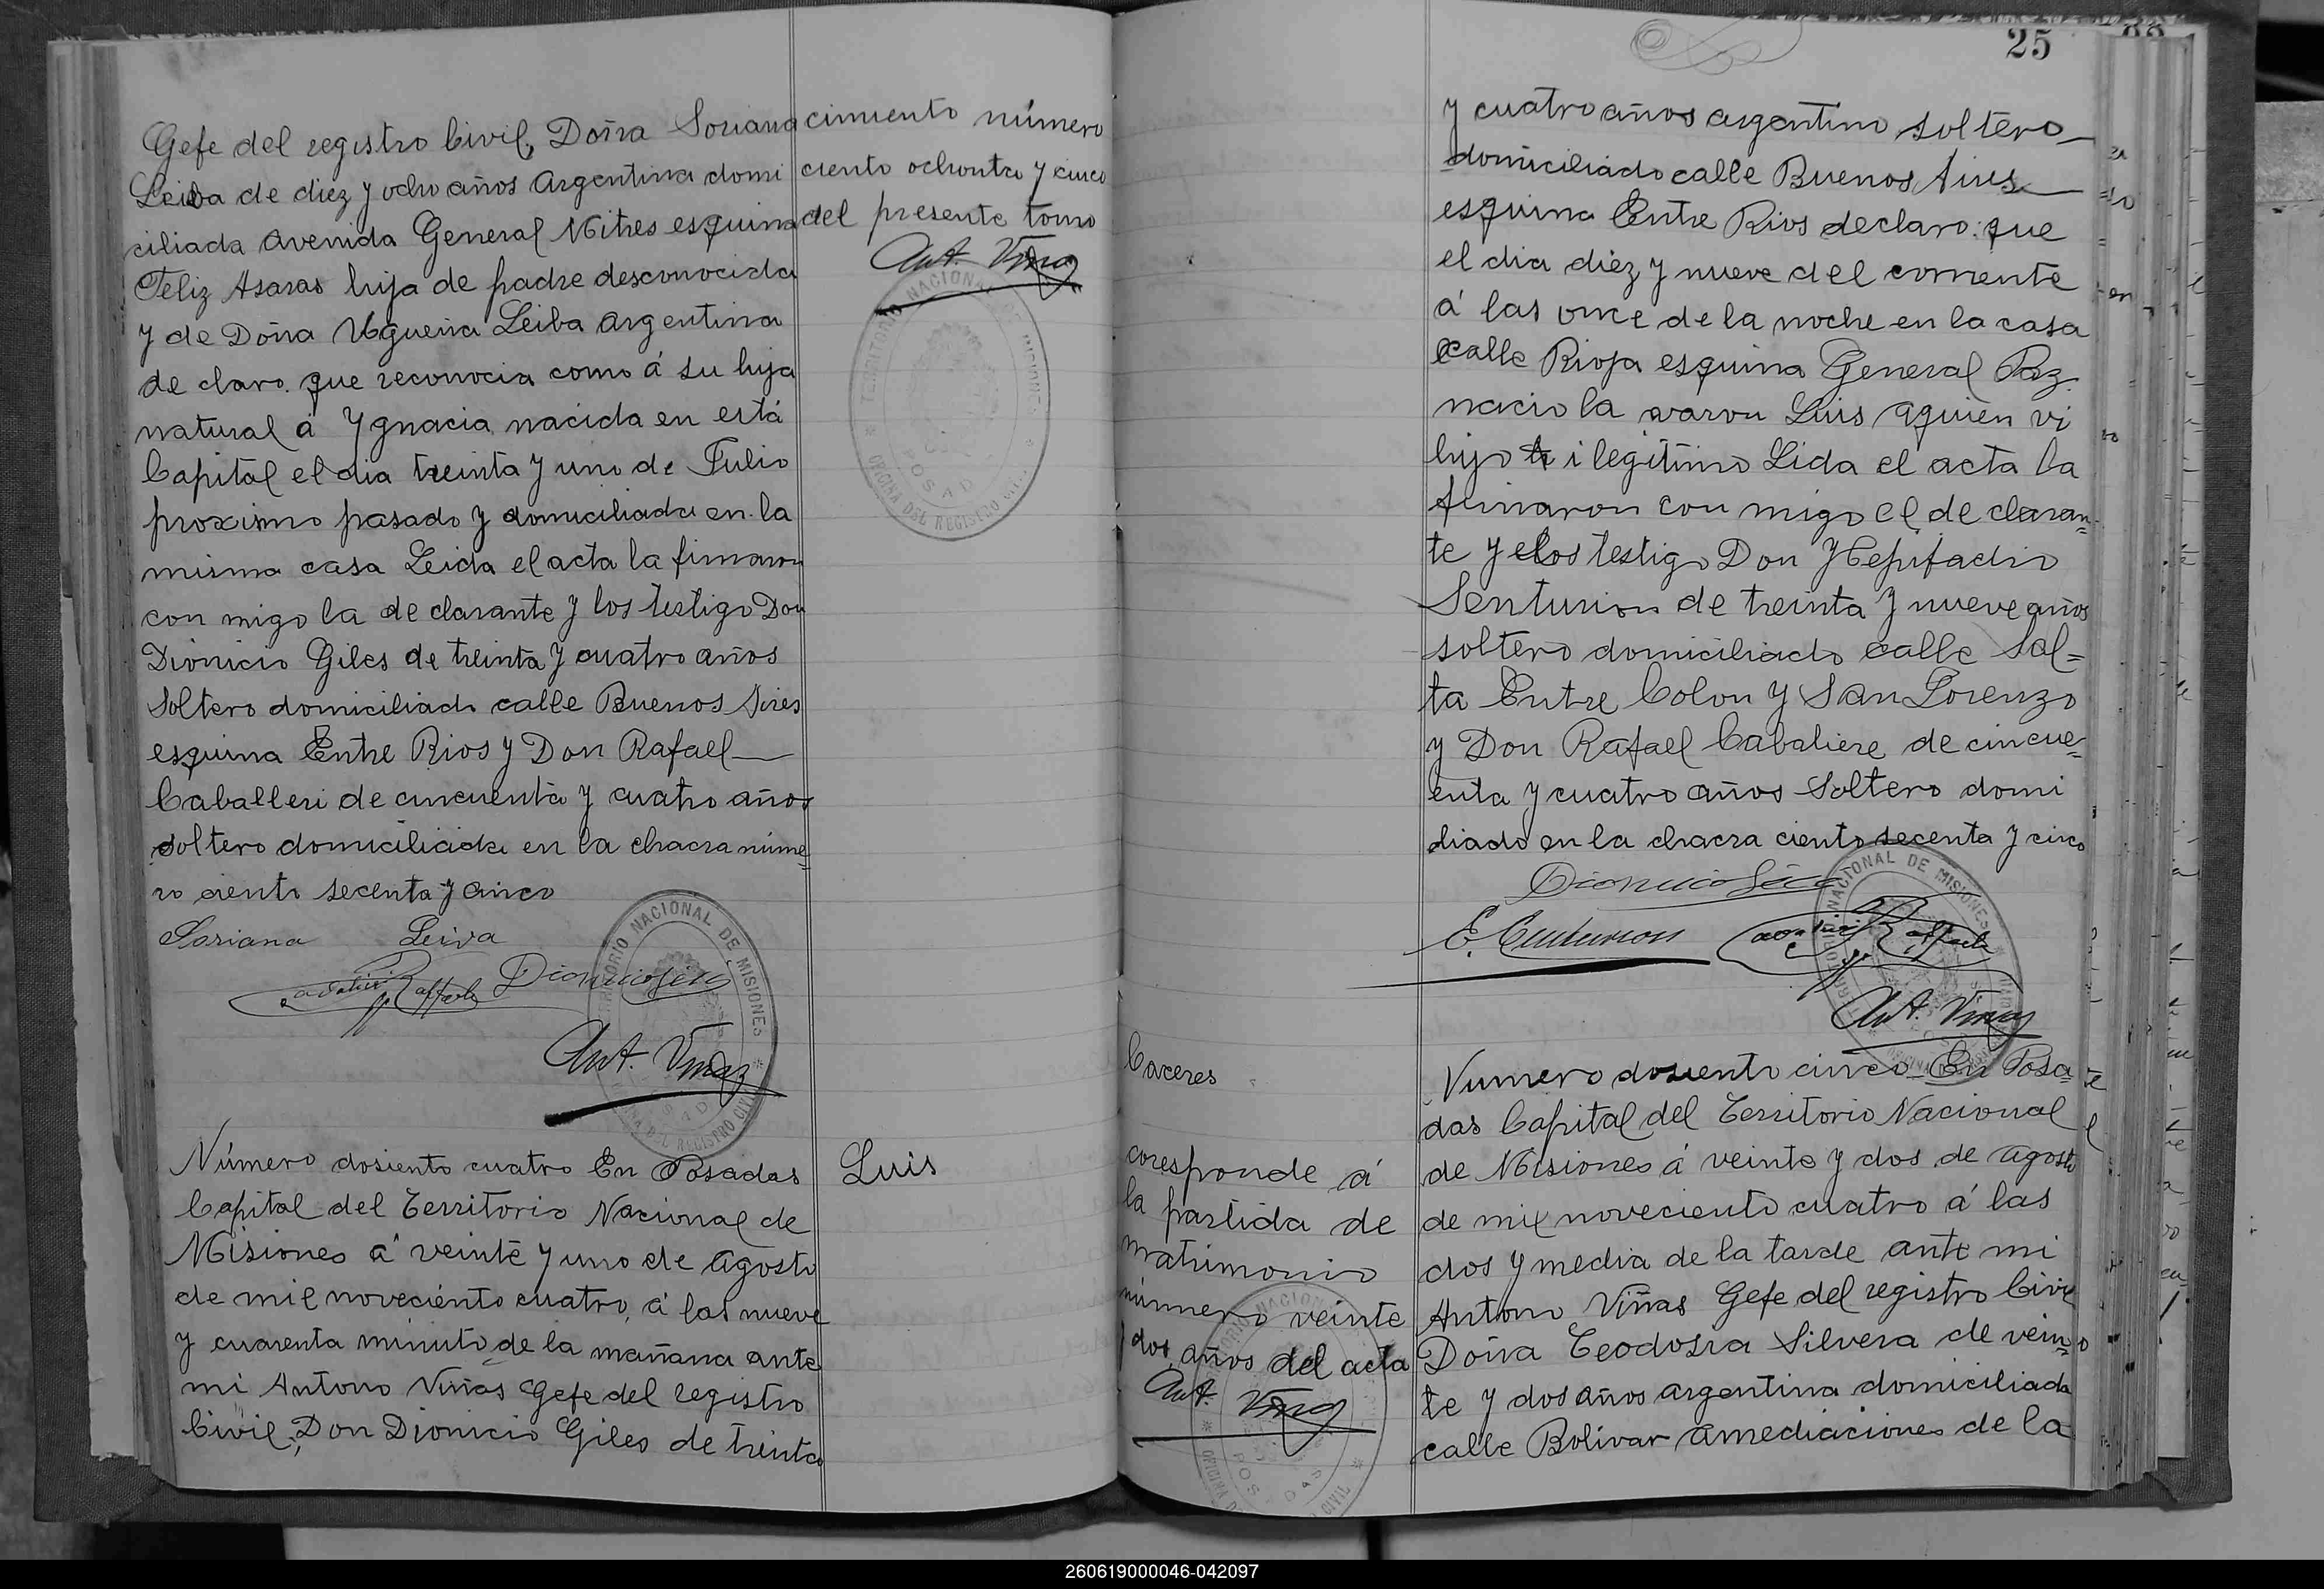 Gefe del registro Civil, Doña Soriana
Leiba de diez y ocho años Argentina domi
ciliada avenida General Mitres esquina
Feliz Asaras hija de padre desconocida
y de Doña Ugueña Leiba argentina
de claro. que reconocia como á su hija
natural á Ygnacia nacida en está
Capital el dia treinta y uno de Julio
proximo pasado y domiciliada en la
misma casa Leida el acta la firmaron
con migo la de clarante y los testigo Don
Dionicio Giles de treinta y cuatro años
Soltero domiciliado calle Buenos Aires
esquina Entre Rios y Don Rafael
Caballeri de cincuenta y cuatro años
soltero domiciliada en la chacra núme=
ro ciento secenta y cinco
Soriana Leiva
Ant. Viñas
cimiento número
ciento ochenta y cinco
del presente tomo
Ant. Viñas
TERRITORIO NACIONAL DE MISIONES
OFICINA DEL REGISTRO CIVIL
POSADAS
Número dosiento cuatro En Posadas
Capital del Territorio Nacional de
Misiones á veinte y uno de Agosto
de mil noveciento cuatro, á las nueve
y cuarenta minuto de la mañana ante
mi Antono Viñas Gefe del registro
Civil; Don Dionicio Giles de treinta
Luis
25
y cuatro años argentino soltero
domiciliado calle Buenos Aires
esquina Entre Rios declaro: que
el dia diez y nueve del corriente
á las once de la noche en la casa
calle Rioja esquina General Paz
nacio la varon Luis aquien vi
hijo ilegitimo Lida el acta la
firmaron con migo el de claran=
te y los testigo Don Yepifacio
Senturion de treinta y nueve años
soltero domiciliado calle Sal=
ta Entre Colon y San Lorenzo
y Don Rafael Cabaliere de cincue=
enta y cuatro años Soltero domi
liado en la chacra ciento secenta y cinco
E. Centurion
Ant. Viñas
Caceres
coresponde á
la partida de
matrimonio
número veinte
y dos años del acta
Ant. Viñas
Numero dosiento cinco En Posa=
das Capital del Territorio Nacional
de Misiones á veinte y dos de agosto
de mil noveciento cuatro á las
dos y media de la tarde ante mi
Antono Viñas Gefe del registro Civil
Doña Teodosia Silvera de vein=
te y dos años argentina domiciliada
calle Bolivar amediaciones de la
260619000046-042097